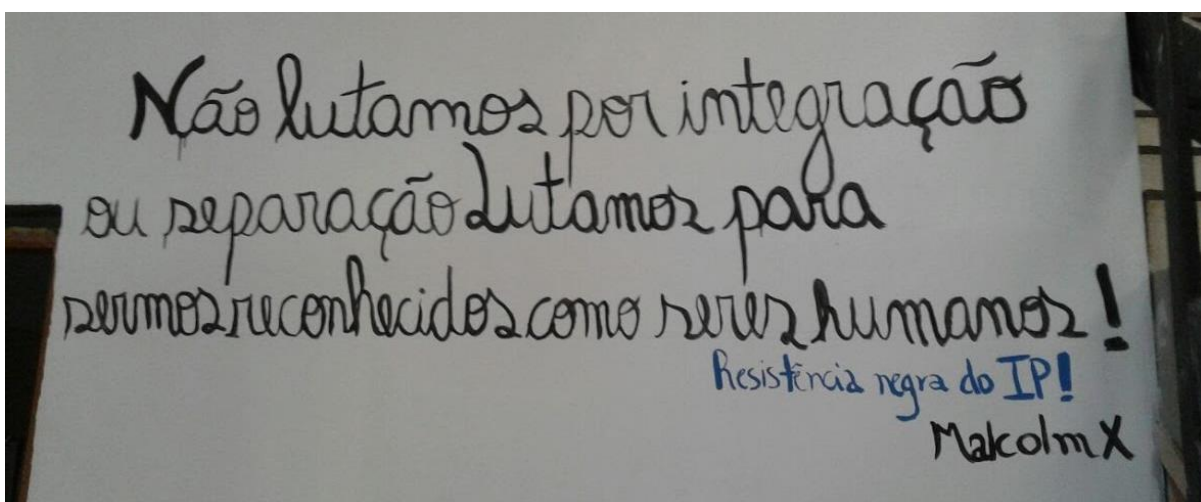 Não lutamos por integração
ou separação Lutamos para
sermos reconhecidos como seres humanos!
Resistência negra do IP!
Malcolm X